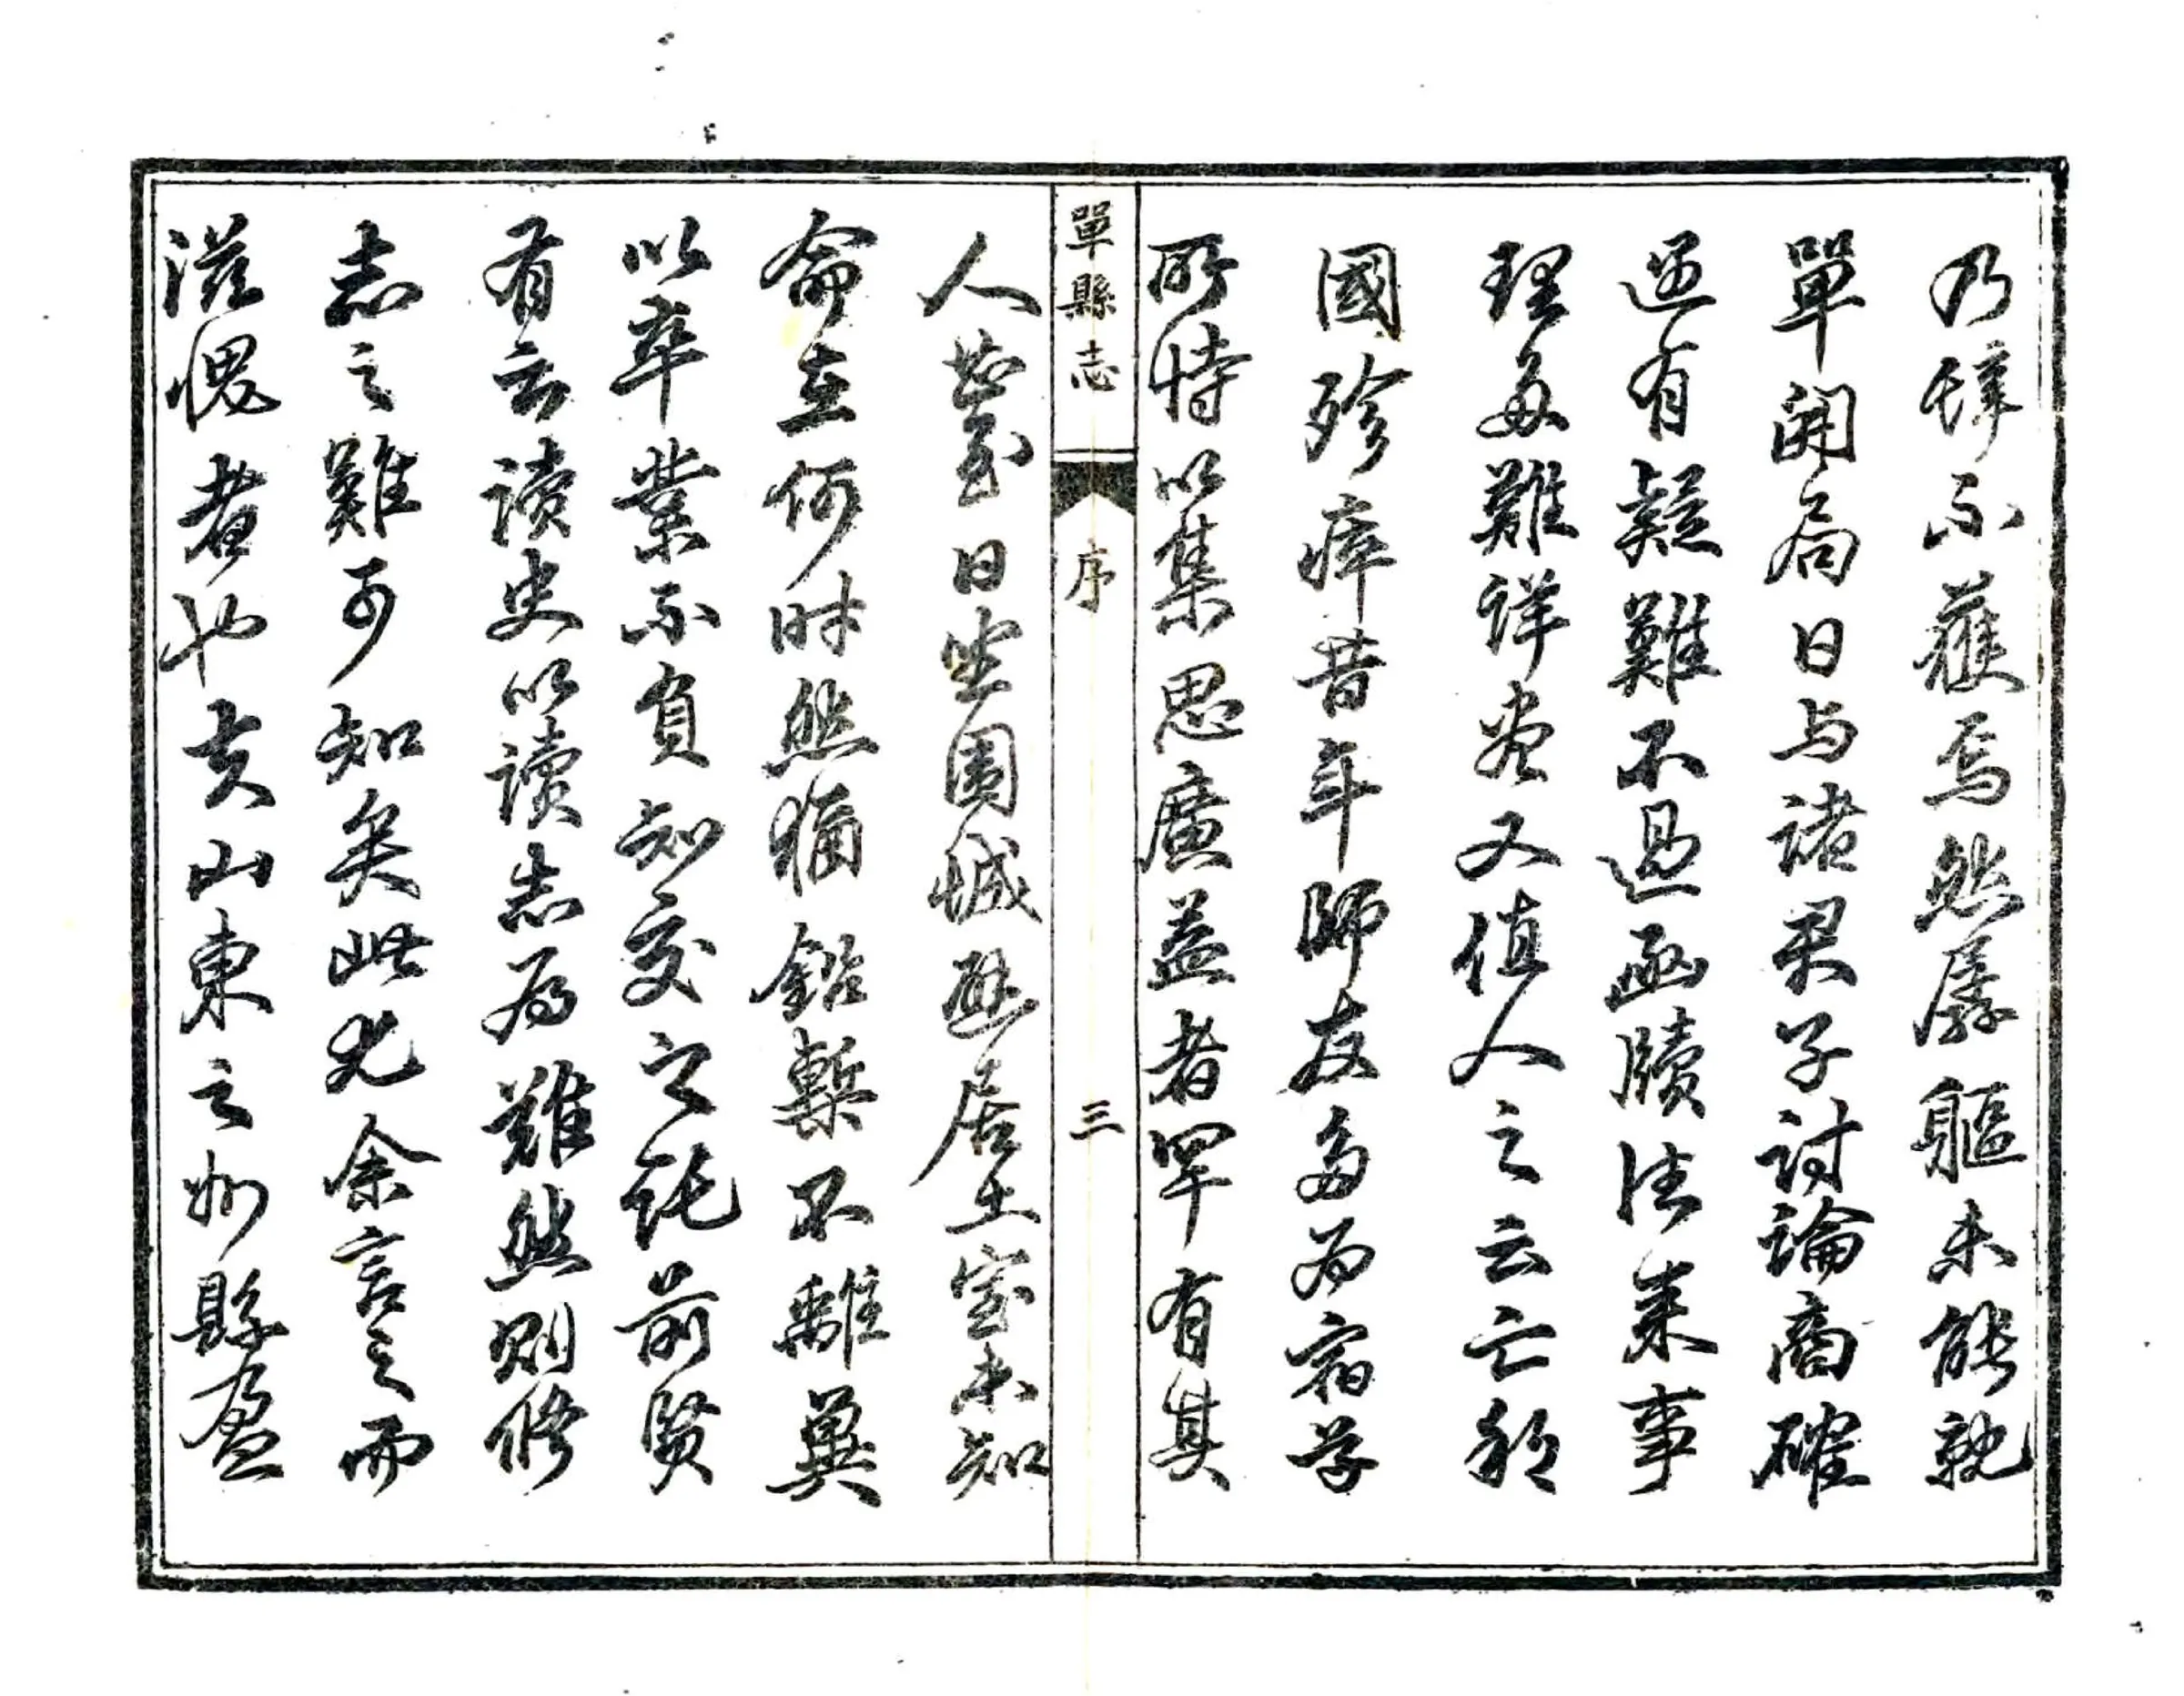 乃辭不獲焉然孱軀未能就
單開局日与諸君子討論商確
遇有疑難不過函牘往來事
理多難詳盡又值人之云亡邦
國殄瘁昔年師友多為宿学
所恃以集思廣益者罕有其
單縣志
序
三
人甚至日坐围城蟄居土室未知
命在何时然猶鉛槧不離冀
以卒業不負知交之託前賢
有云读史以讀志為難然则修
志之難可知矣此尤余言之而
滋愧者也夫山東之州縣盈